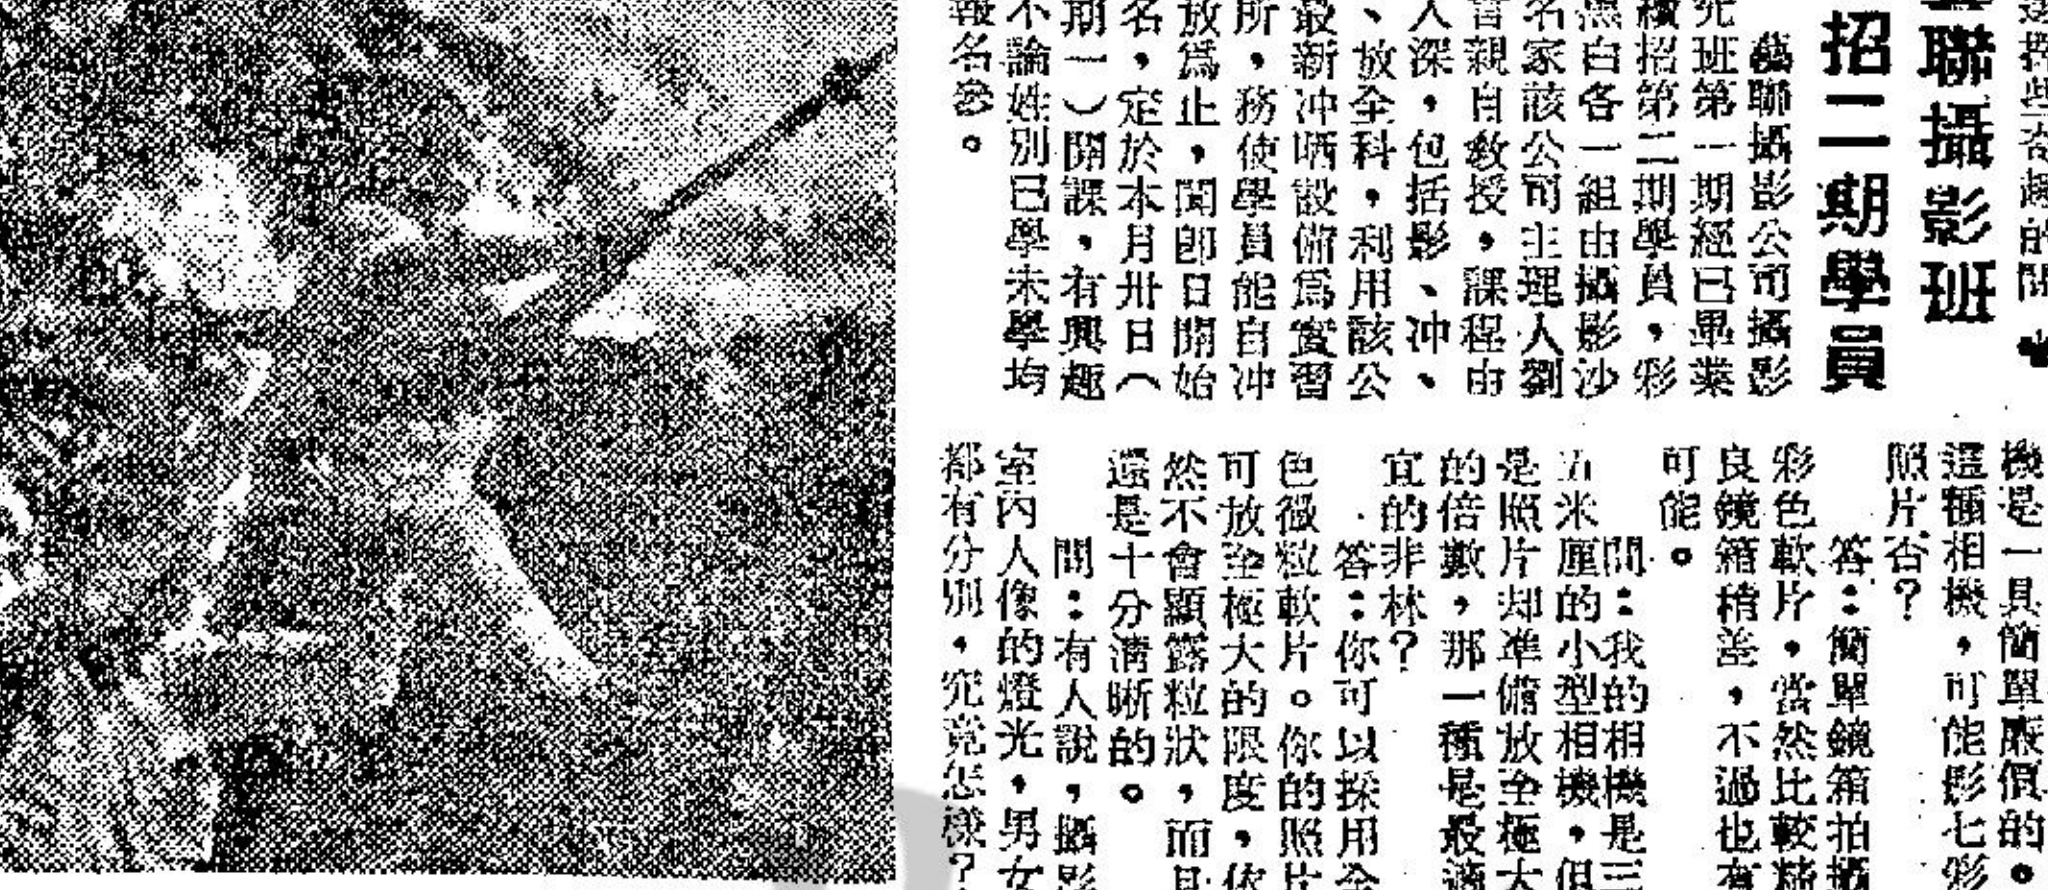 聯攝影班
招二期學員
藝聯攝影公司攝影
究班第一期經已畢業
續招第二期學員，彩
黑白各一組由攝影沙
名家該公司主理人劉
親自教授，課程由
人深，包括影、冲、
、放全科，利用該公
最新冲晒設備爲實習
所，務使學員能自冲
放爲止，聞卽日開始
名，定於本月卅日（
期一）開課，有興趣
不論姓別已學未學均
報名參。
機是一具簡單廉價的。
這種相機，可能影七彩
照片否？
答：簡單鏡箱拍攝
彩色軟片，當然比較精
良鏡箱精善，不過也有
可能。
問：我的相機是三
五米厘的小型相機，但
是照片却準備放至極大
的倍數，那一種是最適
宜的非林？
答：你可以採用全
色微粒軟片。你的照片
可放至極大的限度，依
然不會顯露粒狀，而且
還是十分清晰的。
問：有人說，攝影
室內人像的燈光，男女
都有分別，究竟怎樣？